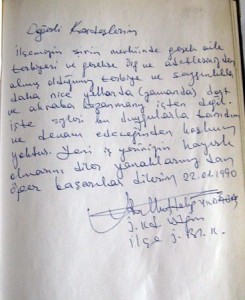 Değerli Kardeşlerim
İlçemizin şirin merkezinde gerek aile
terbiyesi ve gerekse örf ve adetlerimizden
almış olduğunuz terbiye ve saygınlıkla
daha nice yıllarda (zamanda) dost
ve akraba kazanmanız işten değil.
İşte sizleri bu duygularla tanıdım
ve devam edeceğinden kuşkum
yoktur. Yeni iş yerinizin hayırlı
olmasını diler yanaklarınızdan
öper başarılar dilerim 22.01.1990
J.
İlçe J. K.